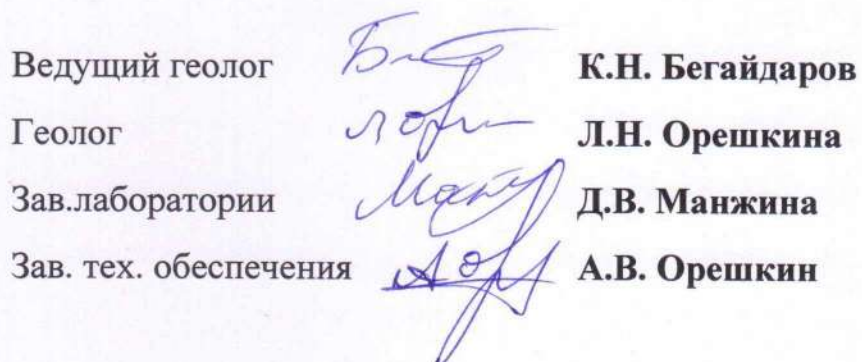 Ведущий геолог К.Н. Бегайдаров
Геолог Л.Н. Орешкина
Зав.лаборатории Д.В. Манжина
Зав. тех. обеспечения А.В. Орешкин